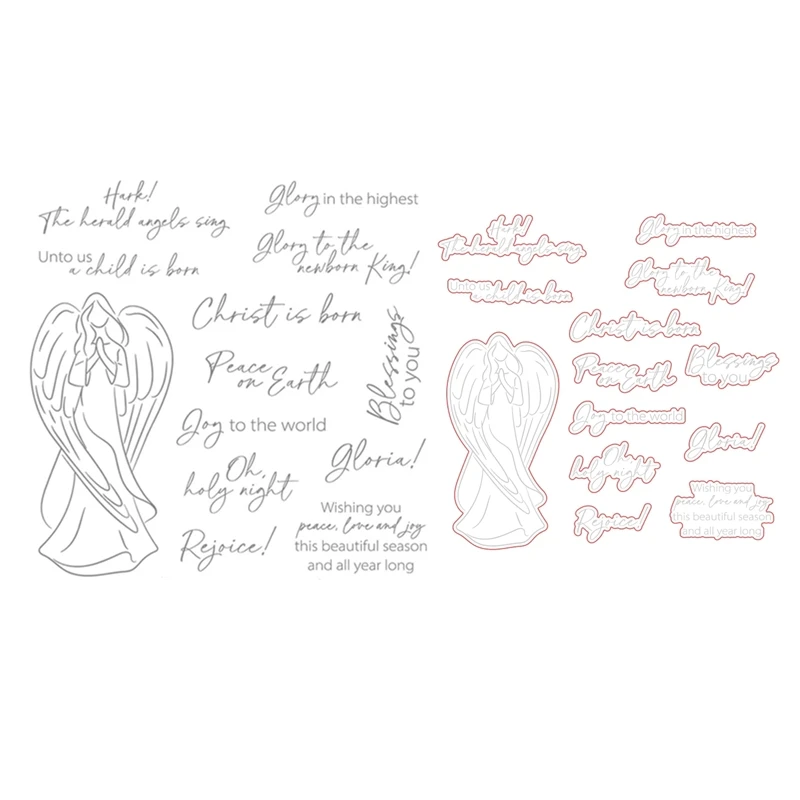 Hark!
The herald angels sing
Glory in the highest
Unto us
a child is born
Glory to the
newborn King!
Christ is born
Peace
on Earth
Blessings
to you
Joy to the world
Oh,
holy night
Gloria!
Rejoice!
Wishing you
peace, love and joy
this beautiful season
and all year long
Hark!
The herald angels sing
Glory in the highest
Unto us
a child is born
Glory to the
newborn King!
Christ is born
Peace
on Earth
Blessings
to you
Joy to the world
Oh,
holy night
Gloria!
Rejoice!
Wishing you
peace, love and joy
this beautiful season
and all year long